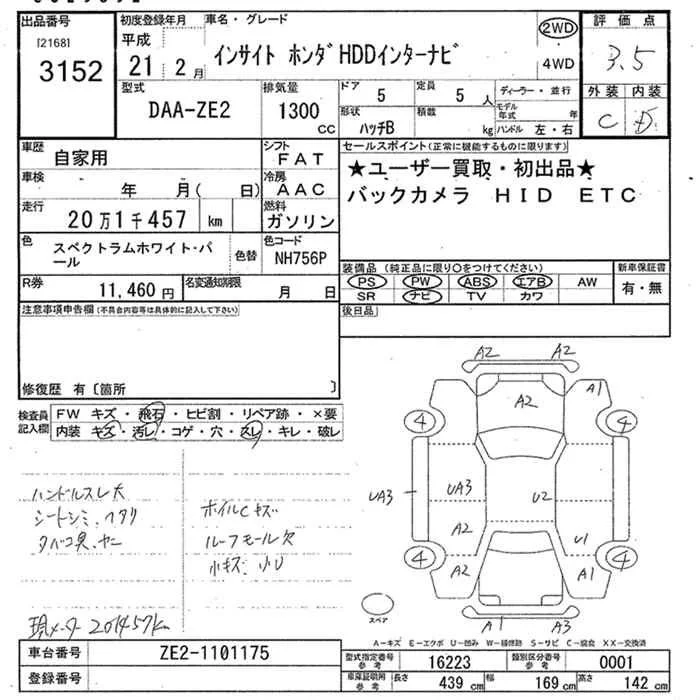 出品番号
[2168]
3152
初度登録年月
平成
21 2月
車名・グレード
インサイト ホンダHDDインターナビ
2WD
4WD
評価点
3.5
外装 内装
C D
型式
DAA-ZE2
排気量
1300
CC
ドア
5
定員
5 人
形状
ハッチB
積載
kg
ディーラー・並行
モデル年式 年
ハンドル 左・右
車歴
自家用
シフト
FAT
車検
年 月( 日)
冷房
AAC
走行
20万1千457 km
燃料
ガソリン
色
スペクトラムホワイト・パール
色替
色コード
NH756P
R券
11,460円
名変通知期限
月 日
セールスポイント(正常に機能するものに限ります)
★ユーザー買取・初出品★
バックカメラ HID ETC
装備品 (純正品に限り○をつけてください)
PS PW ABS エアB AW
SR ナビ TV カワ
新車保証書
有・無
後日品
注意事項申告欄(不具合内容等は具体的に記入して下さい)
修復歴 有〔箇所 〕
検査員記入欄
FW キズ・飛石・ヒビ割・リペア跡・×要
内装 キズ・汚レ・コゲ・穴・スレ・キレ・破レ
ハンドルスレ大
シートシミ、ヘタリ
タバコ臭、ヤニ
ホイルCキズ
ルーフモール欠
小キズ・小U
現メーター 201457km
A2 A2
A1
A2
4 4
UA3 UA3 U2
A2 U1
4 4
A2 A1
A1 A3
スペア
A-キズ E-エクボ U-凹み W-補修跡 S-サビ C-腐食 XX-交換済
車台番号
ZE2-1101175
登録番号
型式指定番号
参考
16223
類別区分番号
参考
0001
車庫証明用
参考
長さ
439 cm
幅
169 cm
高さ
142 cm